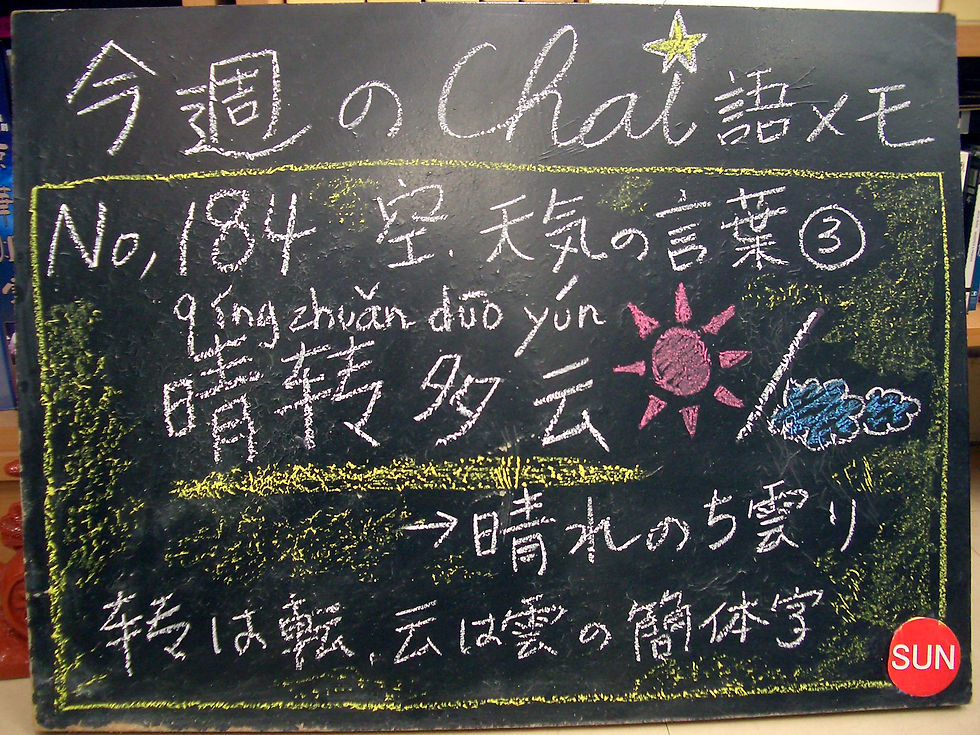 今週のChai語メモ
No,184 空.天気の言葉③
qíng zhuǎn duō yún
晴转多云
→晴れのち雲り
转は転、云は雲の簡体字
SUN